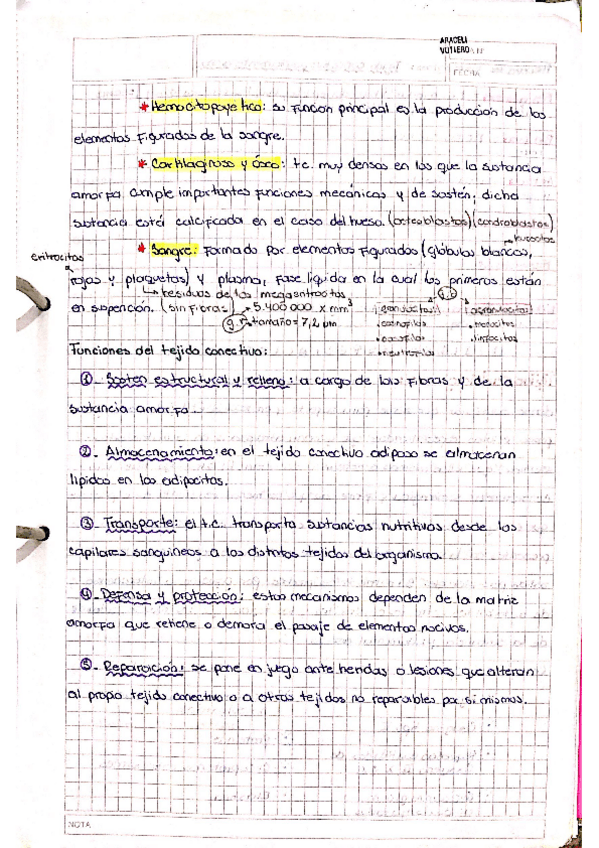 ARACELI
VOTTERO
FECHA
* Hemocitopoyetico: su funcion principal es la produccion de los
elementos figurados de la sangre.
* Cartilaginoso y óseo: t.c. muy densos en los que la sustancia
amorfa cumple importantes funciones mecánicas y de sostén, dicha
sustancia está calcificada en el caso del hueso. (osteoblastos) (condroblastos)
eritrocitos
* Sangre: Formado por elementos figurados (glóbulos blancos,
rojos y plaquetas) y plasma, fase líquida en la cual los primeros están
residuos de los megacitrocitos.
en suspención. (sin fibras) 5.400 000 x mm³
g.r tamaño = 7,2 um
g.b
granulocitos
agranulocitos
eosinofilos
monocitos
basofilos
linfocitos
neutrofilos
Funciones del tejido conectivo:
①- Sosten estructural y relleno: a cargo de las fibras y de la
sustancia amorfa.
②- Almacenamiento: en el tejido conectivo adiposo se almacenan
lipidos en los adipocitos.
③- Transporte: el t.c. transporta sustancias nutritivas desde los
capilares sanguineos a los distintos tejidos del organismo.
④- Defensa y protección: estos mecanismos dependen de la matriz
amorfa que retiene o demora el pasaje de elementos nocivos.
⑤- Reparación: se pone en juego ante heridas o lesiones que alteran
al propio tejido conectivo o a otros tejidos no reparables por si mismos.
NOTA